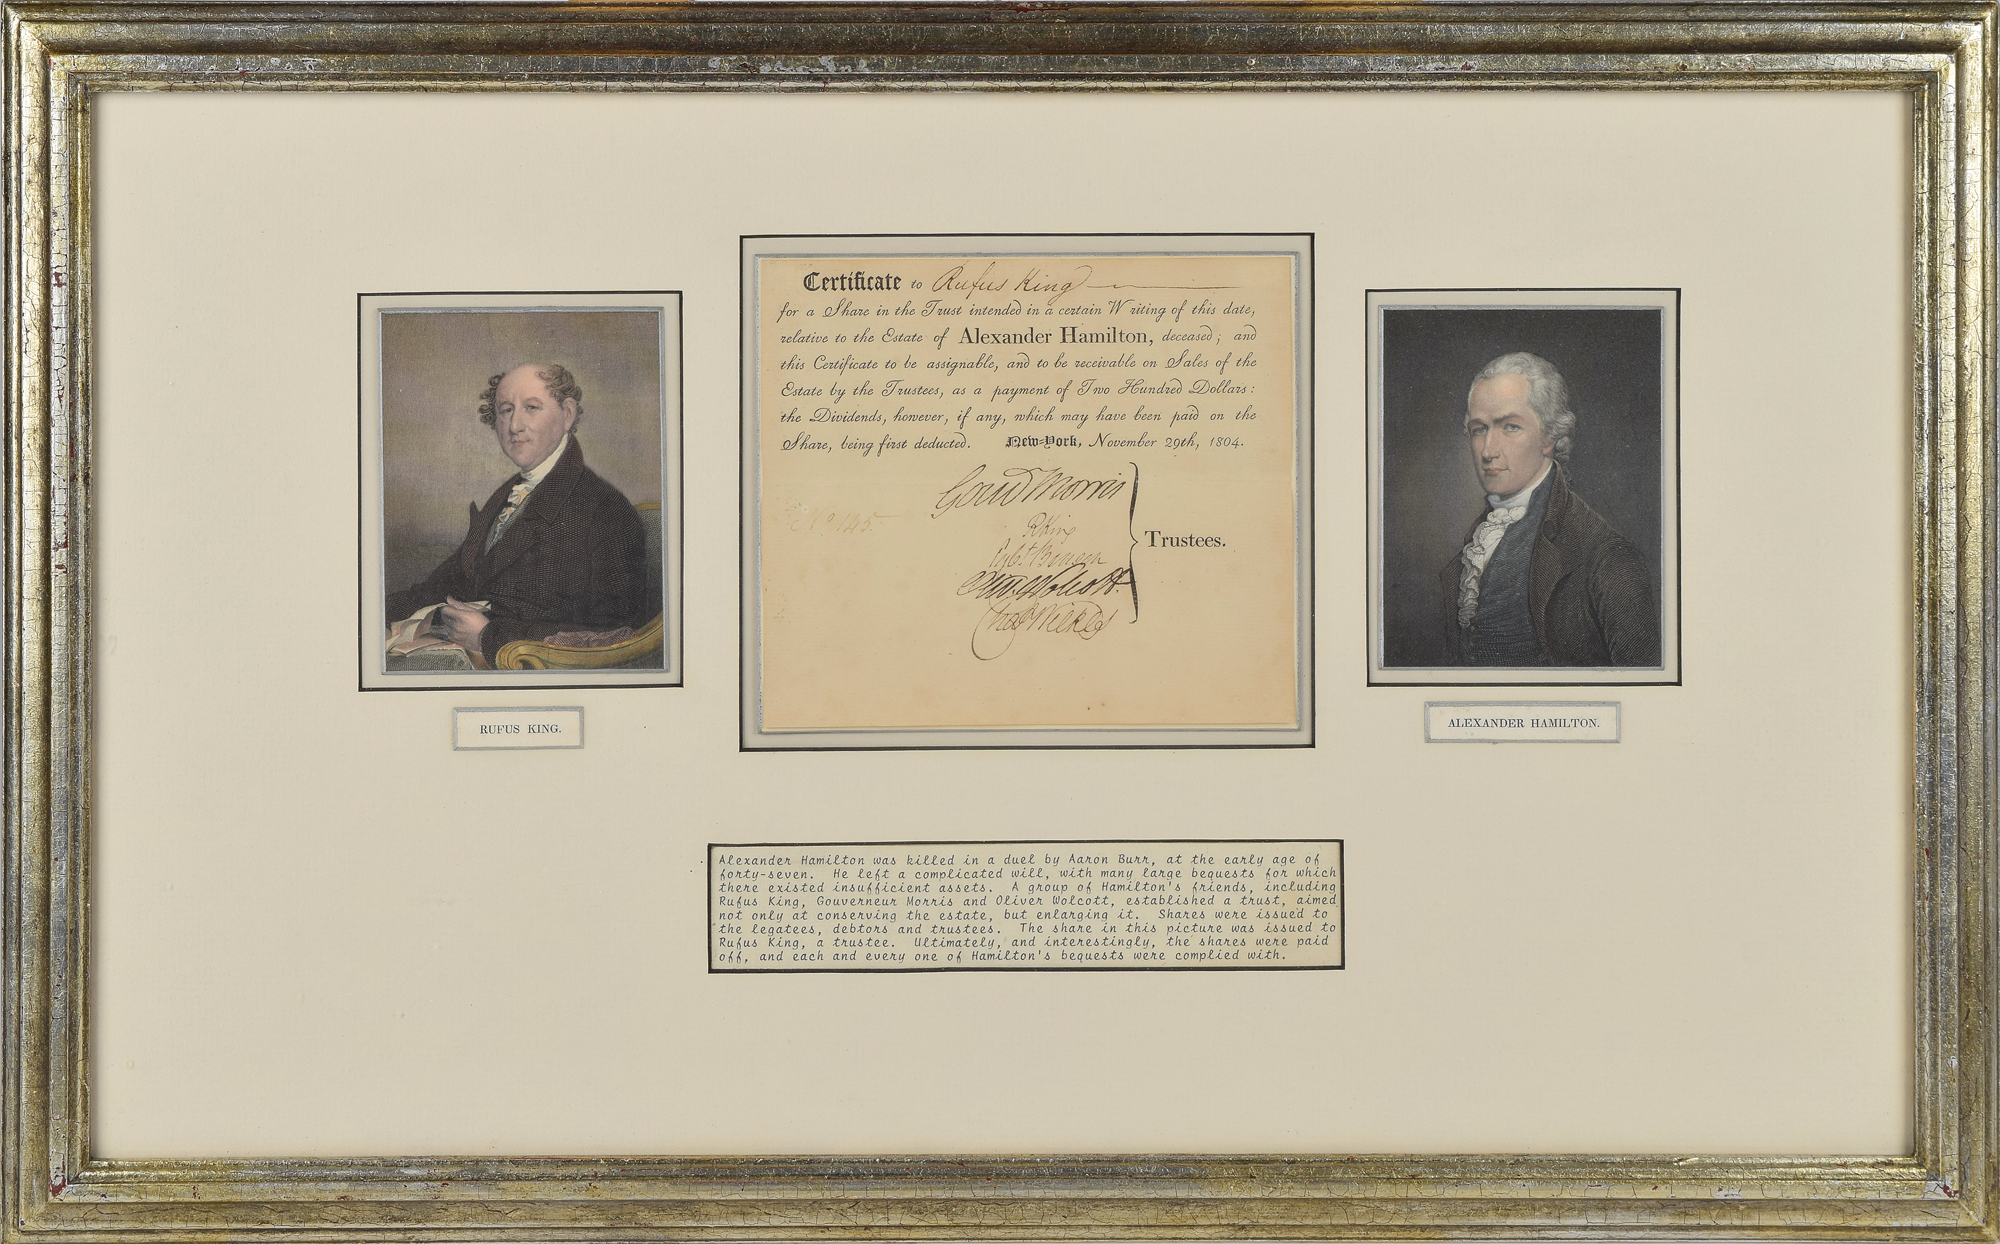 Certificate to Rufus King
for a Share in the Trust intended in a certain Writing of this date,
relative to the Estate of Alexander Hamilton, deceased; and
this Certificate to be assignable, and to be receivable on Sales of the
Estate by the Trustees, as a payment of Two Hundred Dollars:
the Dividends, however, if any, which may have been paid on the
Share, being first deducted. New-York, November 29th, 1804.
Gouv Morris
No. 145
RKing
Egbt Benson
Trustees.
Oliv. Wolcott.
Chas Wilkes
RUFUS KING.
ALEXANDER HAMILTON.
Alexander Hamilton was killed in a duel by Aaron Burr, at the early age of
forty-seven. He left a complicated will, with many large bequests for which
there existed insufficient assets. A group of Hamilton's friends, including
Rufus King, Gouverneur Morris and Oliver Wolcott, established a trust, aimed
not only at conserving the estate, but enlarging it. Shares were issued to
the legatees, debtors and trustees. The share in this picture was issued to
Rufus King, a trustee. Ultimately, and interestingly, the shares were paid
off, and each and every one of Hamilton's bequests were complied with.